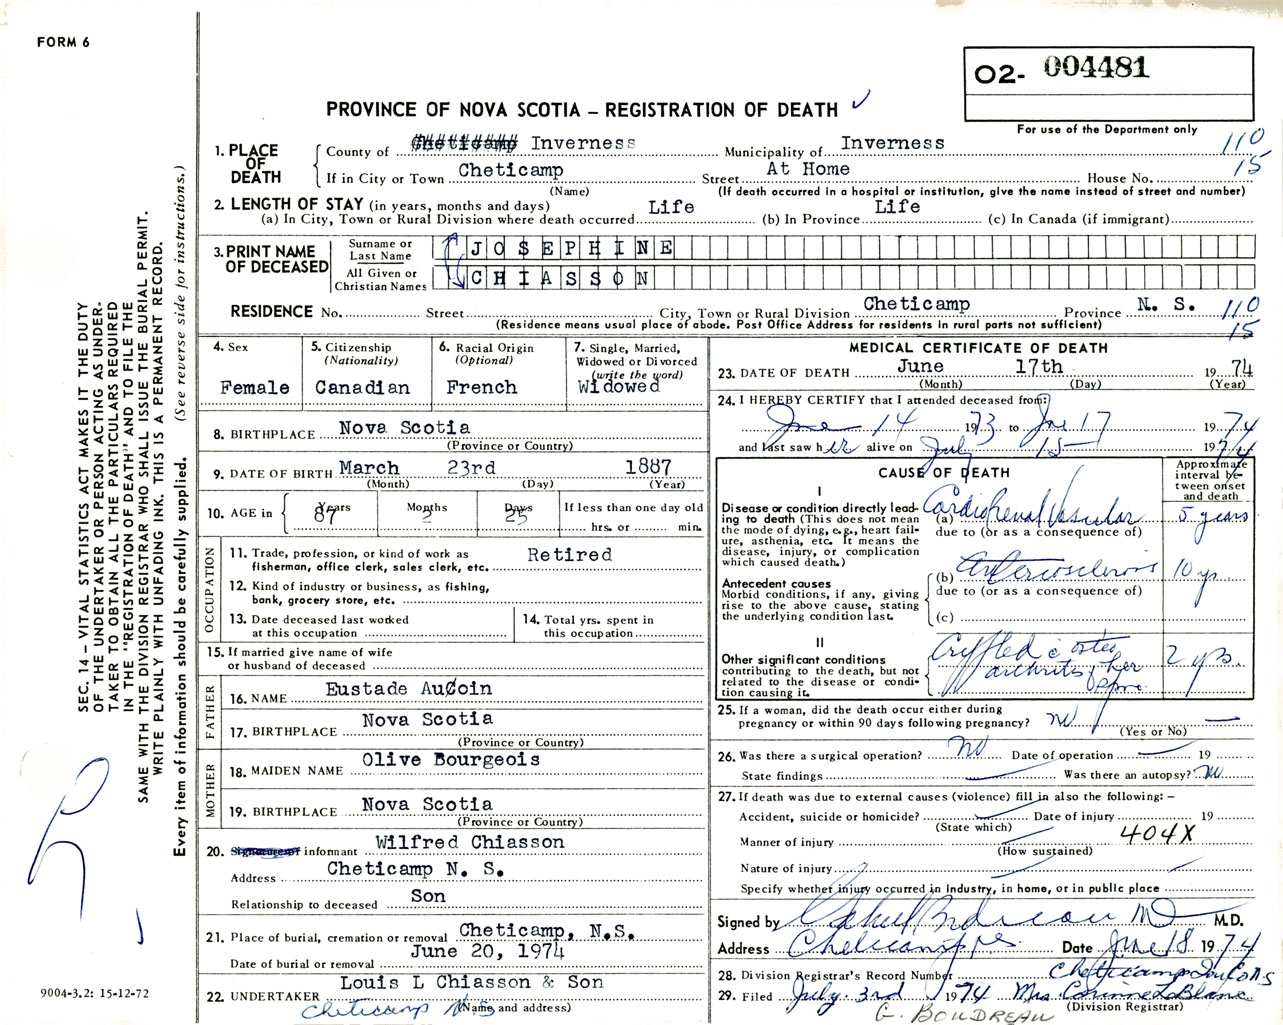 FORM 6
O2- 004481
For use of the Department only
PROVINCE OF NOVA SCOTIA – REGISTRATION OF DEATH
1. PLACE OF DEATH
County of Cheticamp Inverness Municipality of Inverness 110
If in City or Town Cheticamp Street At Home House No. 15
(Name) (If death occurred in a hospital or institution, give the name instead of street and number)
2. LENGTH OF STAY (in years, months and days)
(a) In City, Town or Rural Division where death occurred Life (b) In Province Life (c) In Canada (if immigrant)
3. PRINT NAME OF DECEASED
Surname or Last Name JOSEPHINE
All Given or Christian Names CHIASSON
RESIDENCE No. Street City, Town or Rural Division Cheticamp Province N. S. 110
(Residence means usual place of abode. Post Office Address for residents in rural parts not sufficient) 15
4. Sex
Female
5. Citizenship
(Nationality)
Canadian
6. Racial Origin
(Optional)
French
7. Single, Married,
Widowed or Divorced
(write the word)
Widowed
8. BIRTHPLACE Nova Scotia
(Province or Country)
9. DATE OF BIRTH March 23rd 1887
(Month) (Day) (Year)
10. AGE in Years Months Days If less than one day old
87 2 25 hrs. or min.
OCCUPATION
11. Trade, profession, or kind of work as
fisherman, office clerk, sales clerk, etc. Retired
12. Kind of industry or business, as fishing,
bank, grocery store, etc.
13. Date deceased last worked
at this occupation
14. Total yrs. spent in
this occupation
15. If married give name of wife
or husband of deceased
FATHER
16. NAME Eustade AuCoin
17. BIRTHPLACE Nova Scotia
(Province or Country)
MOTHER
18. MAIDEN NAME Olive Bourgeois
19. BIRTHPLACE Nova Scotia
(Province or Country)
20. Signature of informant Wilfred Chiasson
Address Cheticamp N. S.
Relationship to deceased Son
21. Place of burial, cremation or removal Cheticamp, N.S.
Date of burial or removal June 20, 1974
22. UNDERTAKER Louis L Chiasson & Son
Cheticamp NS (Name and address)
MEDICAL CERTIFICATE OF DEATH
23. DATE OF DEATH June 17th 1974
(Month) (Day) (Year)
24. I HEREBY CERTIFY that I attended deceased from:
June 14 1973 to June 17 1974
and last saw her alive on July 15 1974
CAUSE OF DEATH
Approximate
interval be-
tween onset
and death
I
Disease or condition directly lead-
ing to death (This does not mean
the mode of dying, e.g., heart fail-
ure, asthenia, etc. It means the
disease, injury, or complication
which caused death.)
(a) Cardio Renal Vascular 5 years
due to (or as a consequence of)
Antecedent causes
Morbid conditions, if any, giving
rise to the above cause, stating
the underlying condition last.
(b) Arteriosclerosis 10 yrs
due to (or as a consequence of)
(c)
II
Other significant conditions
contributing to the death, but not
related to the disease or condi-
tion causing it.
Crippled c osteo
arthritis of her
2 yrs.
25. If a woman, did the death occur either during
pregnancy or within 90 days following pregnancy? no
(Yes or No)
26. Was there a surgical operation? no Date of operation 19
State findings Was there an autopsy? No
27. If death was due to external causes (violence) fill in also the following: –
Accident, suicide or homicide? Date of injury 19
(State which)
Manner of injury 404X
(How sustained)
Nature of injury
Specify whether injury occurred in industry, in home, or in public place
Signed by Boudreau MD M.D.
Address Cheticamp NS Date June 18 1974
28. Division Registrar's Record Number Cheticamp Inv Co NS
29. Filed July 3rd 1974 Mrs. Corinne LeBlanc
(Division Registrar)
G. BOUDREAU
SEC. 14 – VITAL STATISTICS ACT MAKES IT THE DUTY
OF THE UNDERTAKER OR PERSON ACTING AS UNDER-
TAKER TO OBTAIN ALL THE PARTICULARS REQUIRED
IN THE "REGISTRATION OF DEATH" AND TO FILE THE
SAME WITH THE DIVISION REGISTRAR WHO SHALL ISSUE THE BURIAL PERMIT.
WRITE PLAINLY WITH UNFADING INK. THIS IS A PERMANENT RECORD.
Every item of information should be carefully supplied. (See reverse side for instructions.)
9004-3.2: 15-12-72